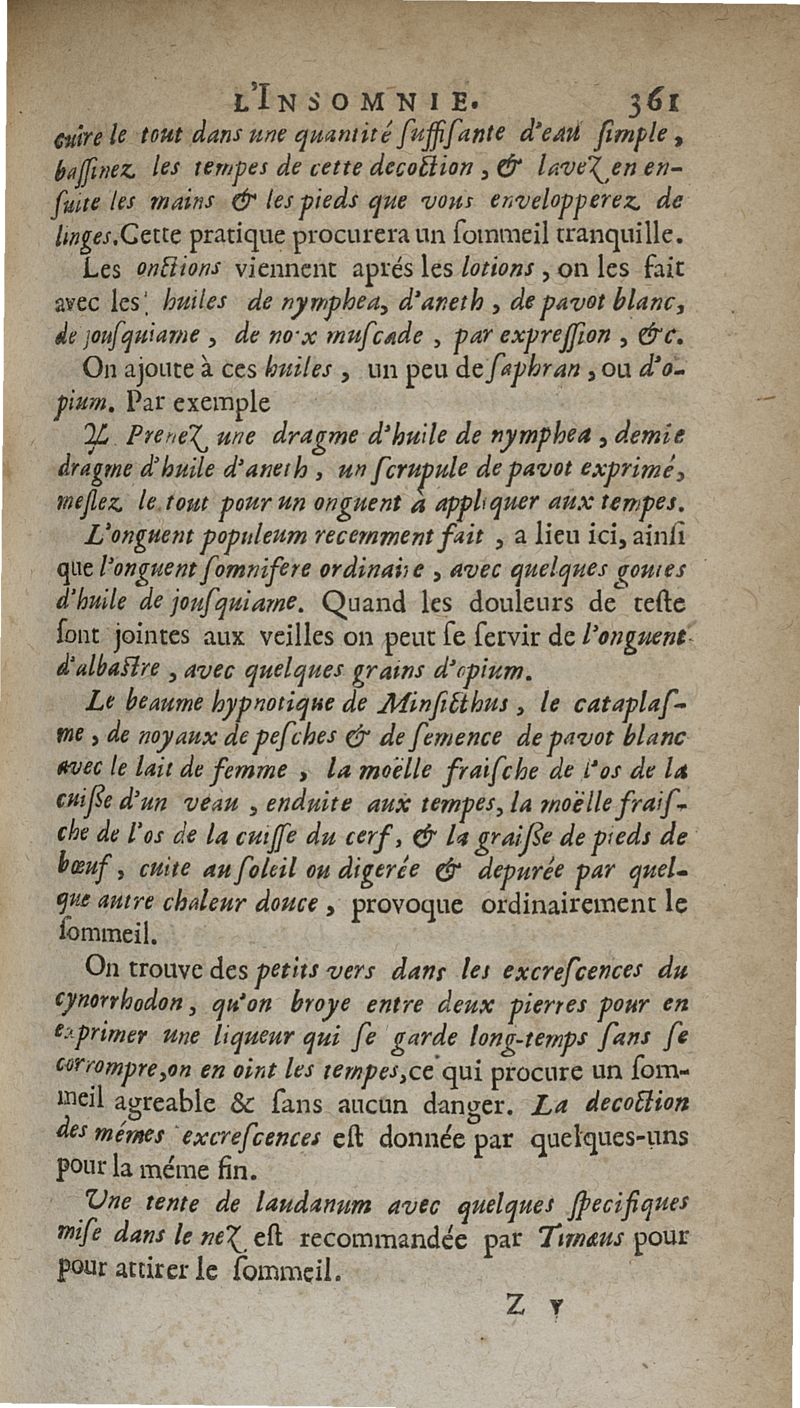 L'INSOMNIE. 361
cuire le tout dans une quantité ſuffiſante d'eau ſimple,
baſſinez les tempes de cette decoction, & lavez en en-
ſuite les mains & les pieds que vous envelopperez de
linges. Cette pratique procurera un ſommeil tranquille.
Les onctions viennent aprés les lotions, on les fait
avec les huiles de nymphea, d'aneth, de pavot blanc,
de jouſquiame, de noix muſcade, par expreſſion, &c.
On ajoute à ces huiles, un peu de ſaphran, ou d'o-
pium. Par exemple
℞. Prenez une dragme d'huile de nymphea, demie
dragme d'huile d'aneth, un ſcrupule de pavot exprimé,
meſlez le tout pour un onguent à appliquer aux tempes.
L'onguent populeum recemment fait, a lieu ici, ainſi
que l'onguent ſomnifere ordinaire, avec quelques goutes
d'huile de jouſquiame. Quand les douleurs de teſte
ſont jointes aux veilles on peut ſe ſervir de l'onguent
d'albaſtre, avec quelques grains d'opium.
Le beaume hypnotique de Minſicthus, le cataplaſ-
me, de noyaux de peſches & de ſemence de pavot blanc
avec le lait de femme, la moëlle fraiſche de l'os de la
cuiſſe d'un veau, enduite aux tempes, la moëlle fraiſ-
che de l'os de la cuiſſe du cerf, & la graiſſe de pieds de
bœuf, cuite au ſoleil ou digerée & depurée par quel-
que autre chaleur douce, provoque ordinairement le
ſommeil.
On trouve des petits vers dans les excreſcences du
cynorrhodon, qu'on broye entre deux pierres pour en
exprimer une liqueur qui ſe garde long-temps ſans ſe
corrompre, on en oint les tempes, ce qui procure un ſom-
meil agreable & ſans aucun danger. La decoction
des mémes excreſcences eſt donnée par quelques-uns
pour la méme fin.
Une tente de laudanum avec quelques ſpecifiques
miſe dans le nez eſt recommandée par Timæus pour
pour attirer le ſommeil.
Z v